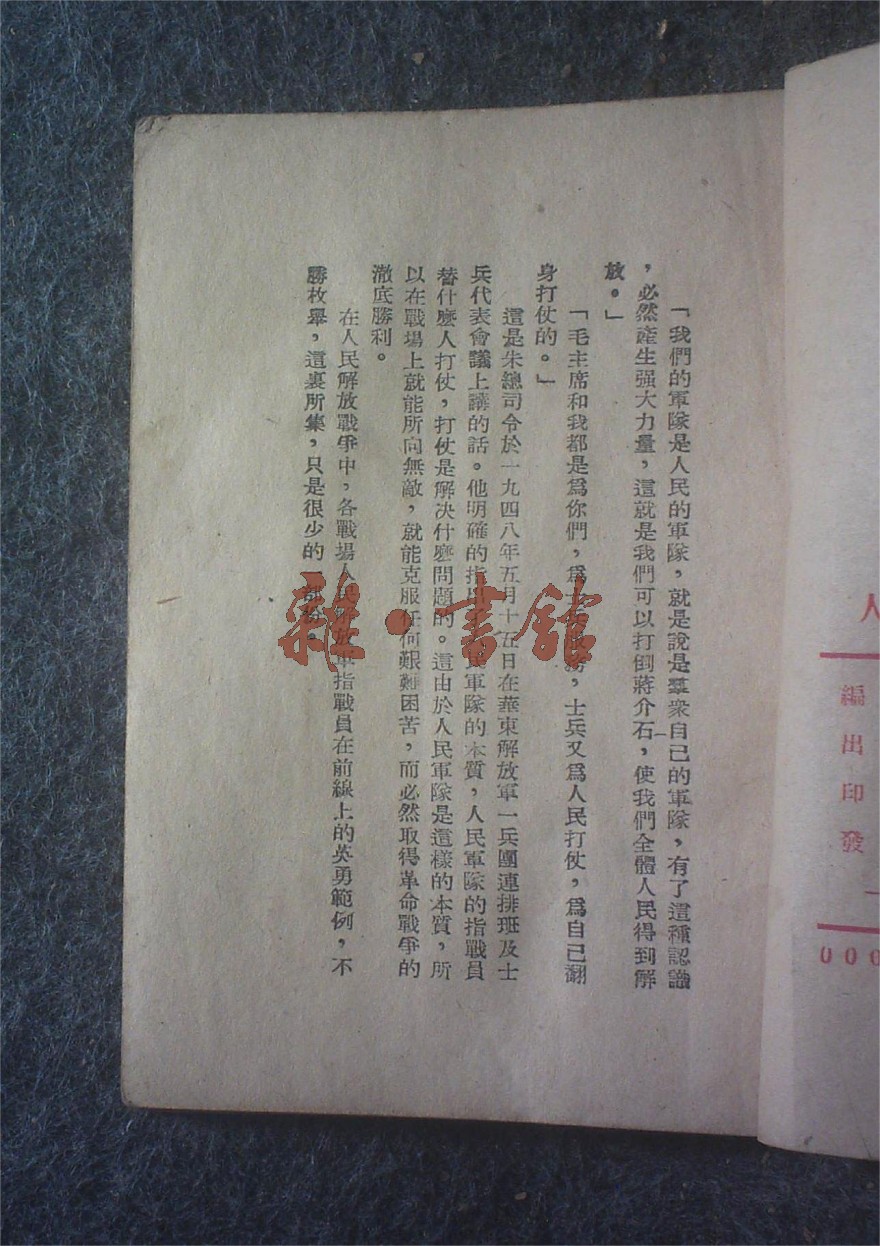 「我們的軍隊是人民的軍隊，就是說是羣衆自己的軍隊，有了這種認識
，必然產生强大力量，這就是我們可以打倒蔣介石，使我們全體人民得到解
放。」
「毛主席和我都是爲你們，爲士兵服務，士兵又爲人民打仗，爲自己翻
身打仗的。」
這是朱總司令於一九四八年五月十五日在華東解放軍一兵團連排班及士
兵代表會議上講的話。他明確的指出了人民軍隊的本質，人民軍隊的指戰員
替什麽人打仗，打仗是解决什麽問題的。這由於人民軍隊是這樣的本質，所
以在戰場上就能所向無敵，就能克服任何艱難困苦，而必然取得革命戰爭的
澈底勝利。
在人民解放戰爭中，各戰場人民解放軍指戰員在前線上的英勇範例，不
勝枚舉，這裏所集，只是很少的一部份。
雜·書館
人
編
出
印
發
一
000